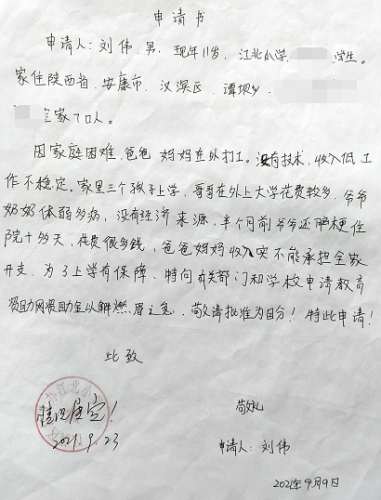 申请书
申请人：刘伟，男，现年11岁，江北小学 学生。
家住陕西省，安康市，汉滨区，谭坝乡
全家7口人。
因家庭困难，爸爸妈妈在外打工。没有技术，收入低工
作不稳定，家里三个孩子上学，哥哥在外上大学花费较多，爷爷
奶奶体弱多病，没有经济来源，半个月前爷爷还脑梗住
院十多天，花费很多钱，爸爸妈妈收入实不能承担全数
开支。为了上学有保障，特向有关部门和学校申请教育
资助网资助金以解燃眉之急，敬请批准为盼！特此申请！
此致
江北小
情况属实！
敬礼
2021.9.23
申请人：刘伟
2021年9月9日